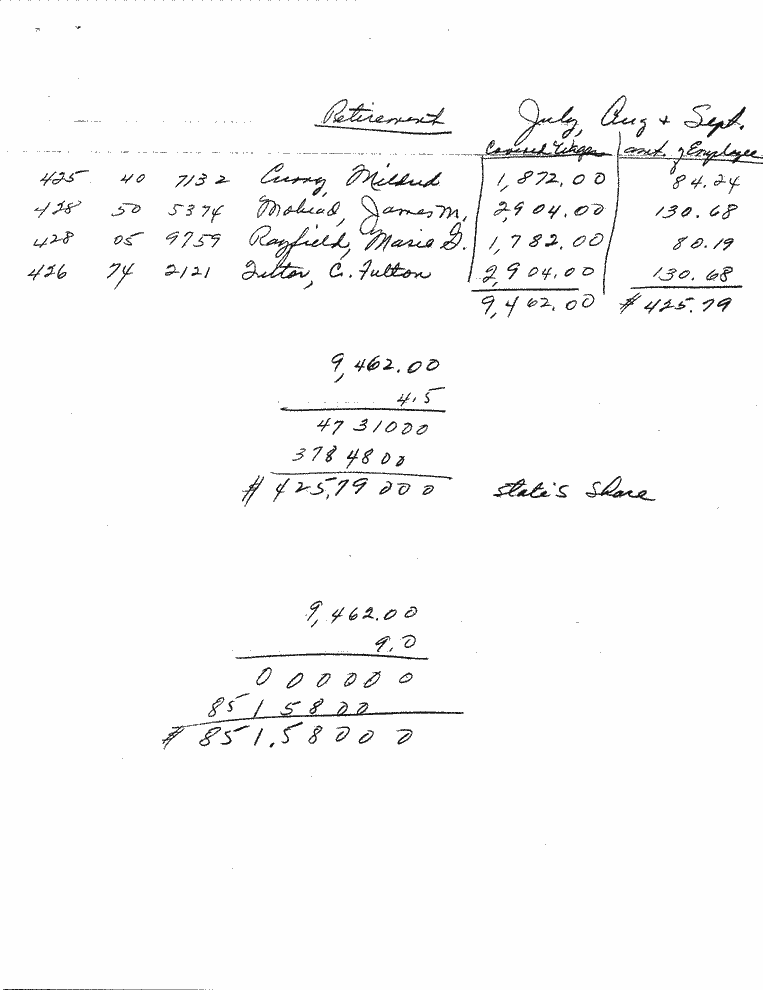 Retirement July, Aug + Sept.
Covered Wages amt. of Employee
425 40 7132 Mildred 1,872.00 84.24
428 50 5374 James M. 2,904.00 130.68
428 05 9759 Rayfield, Marie D. 1,782.00 80.19
426 74 2121 C. Fulton 2,904.00 130.68
9,462.00 $425.79
9,462.00
4.5
4731000
3784800
$425.79000 State's Share
9,462.00
9.0
000000
8515800
$851.58000